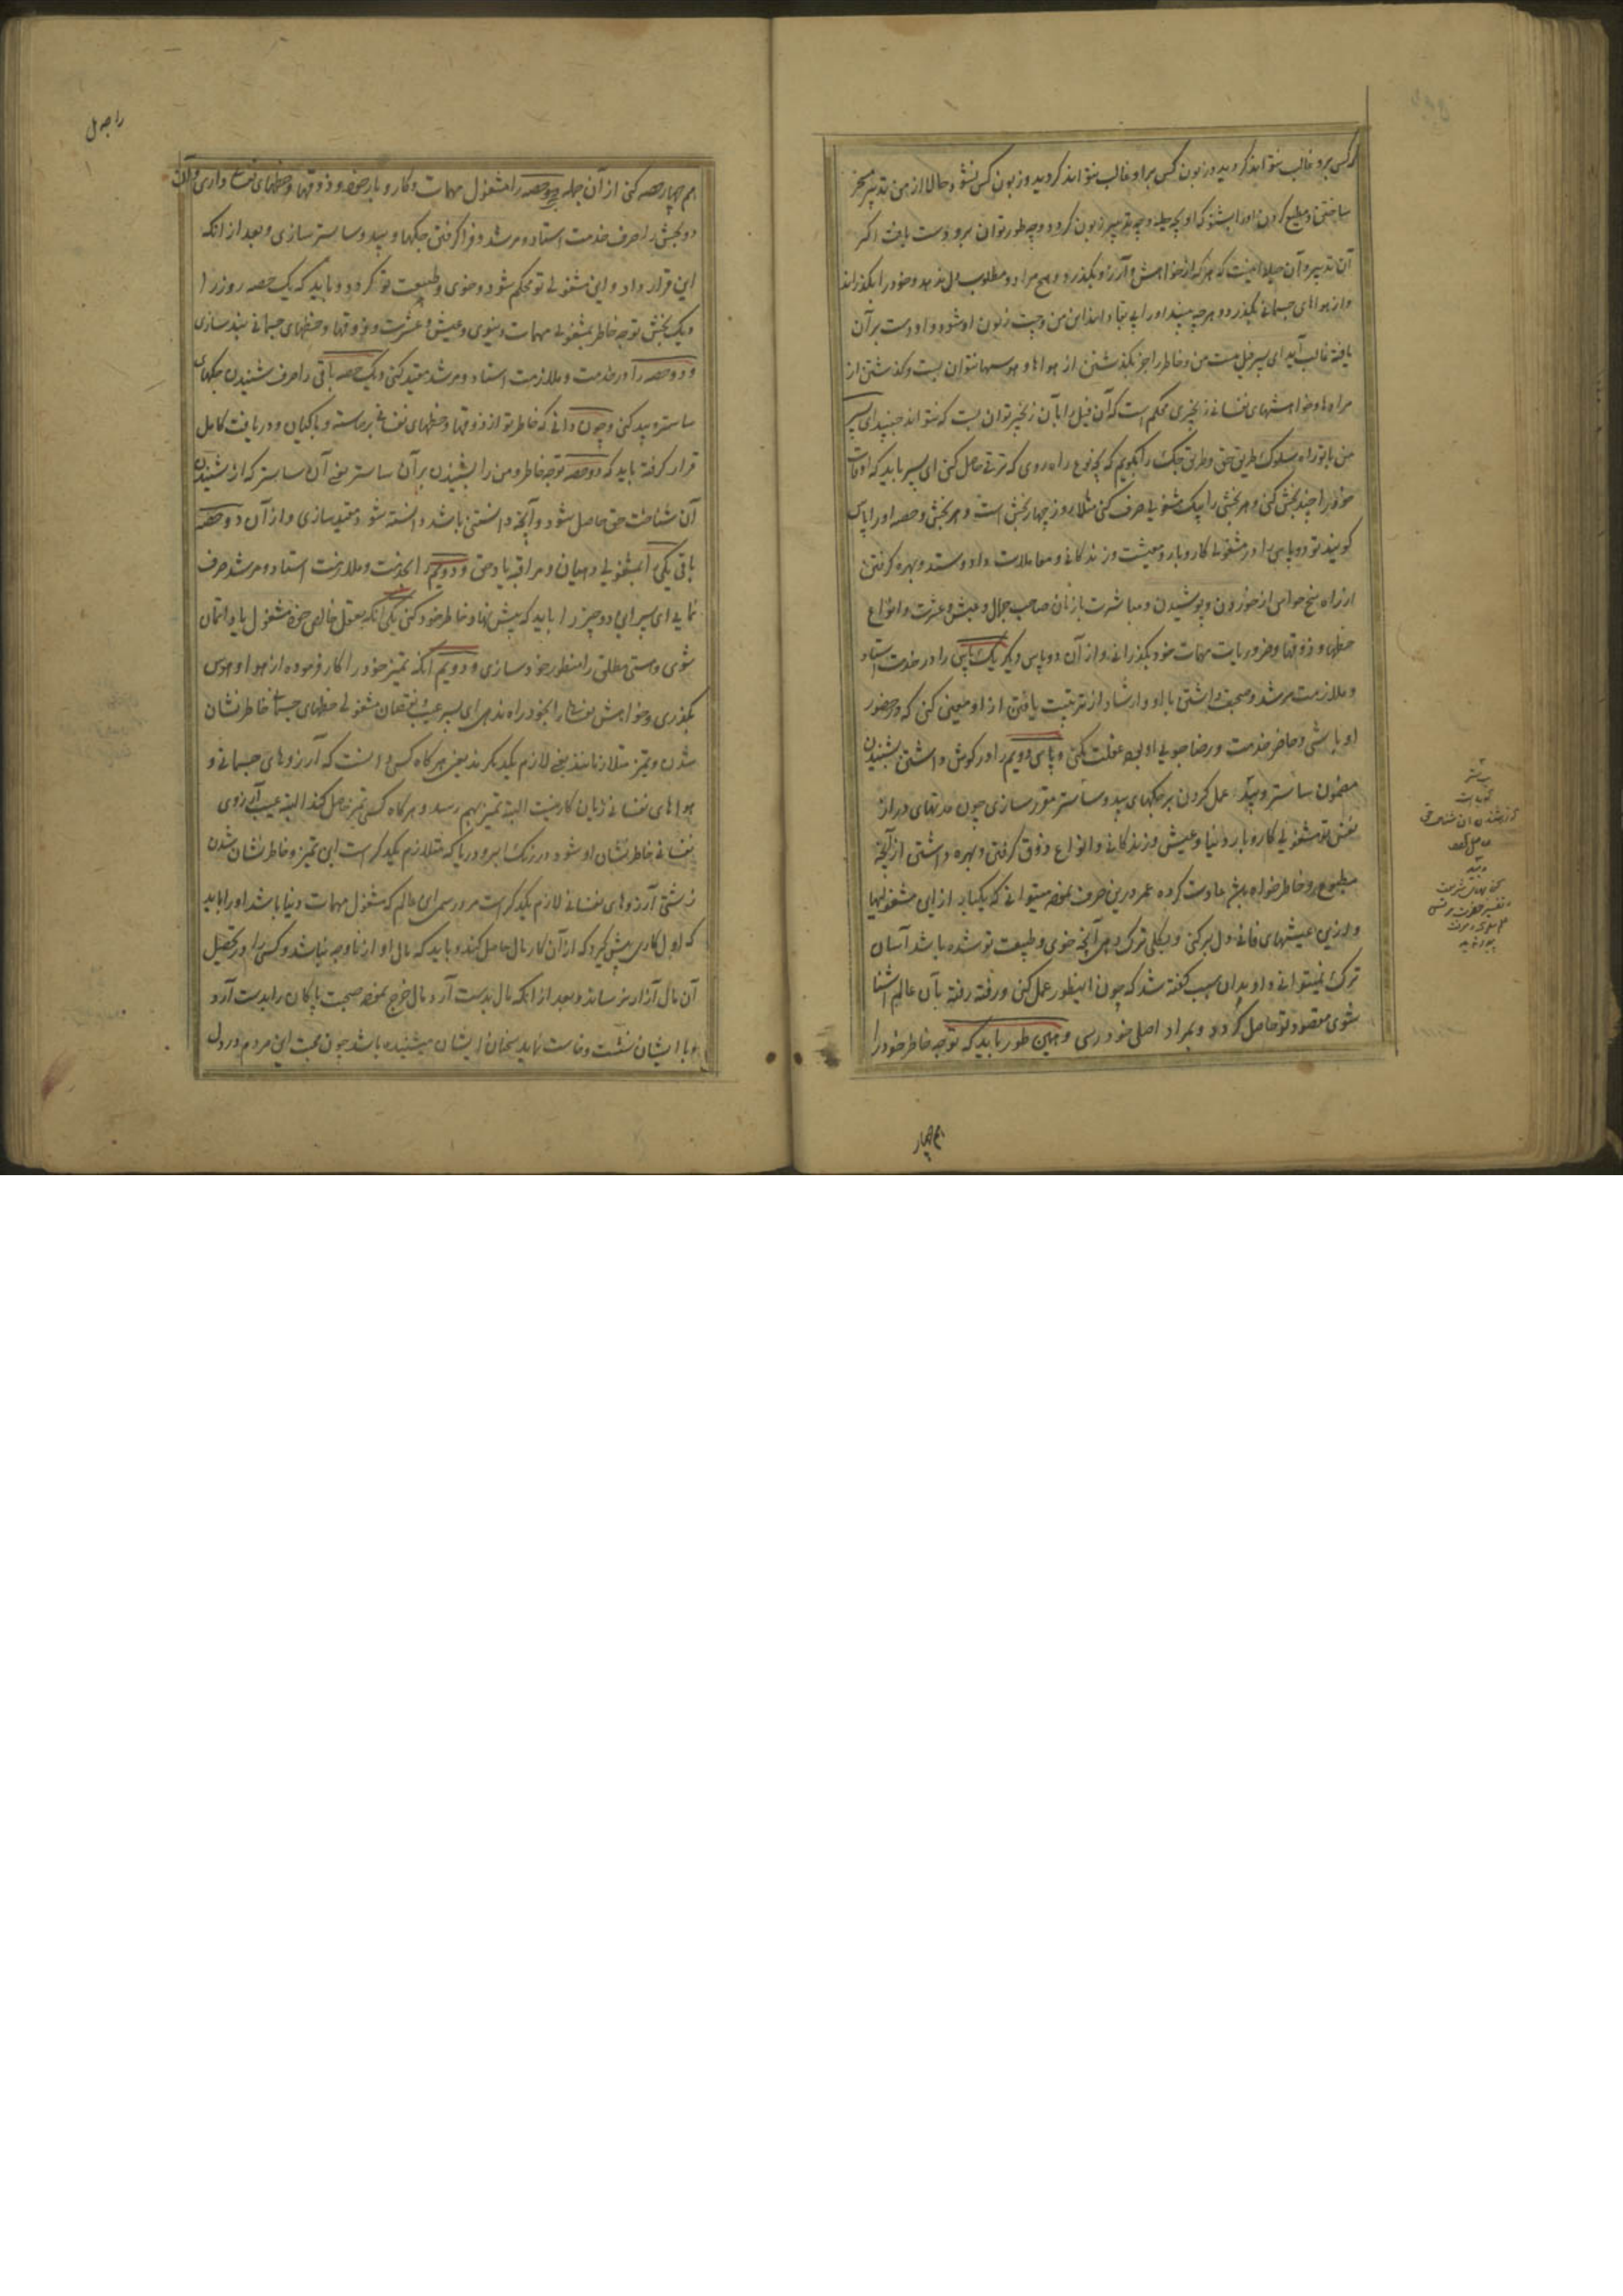 کس برو غالب نتواند کردید و زبون کس برا و غالب نتواند کردید و زبون کس نشود حالا از من تدبیر مسخر
ساختن و مطیع کردن او را بشنو که او بچه حیله و چه تدبیر زبون کردد و چه طور توان برو دست یافت اکر
آن تدبیر و آن حیله اینست که هر که از خواهش و آرزو بکذرد و هیچ مراد و مطلوب دل ندهد و خود را بکذراند
و از هواهای جسمانی بکذرد و هر چه بیند او را بی بقا داند این من و چت زبون او شود و او دست بر آن
یافته غالب آید ای پسر فیل مست من و خاطر را جز بکذشتن از هواها و هوسها نتوان بست و کذشتن از
مرادها و خواهشهای نفسانی زنجیری محکم است که آن فیل را بآن زنجیر توان بست که نتواند جنبید ای پسر
من با تو راه سلوک طریق حق و طریق جک را بکویم که بچه نوع راه روی که ترقی حاصل کنی ای پسر باید که اوقات
خود را چند بخش کنی و هر بخش را بیک مشغولی صرف کنی مثلا روز چهار بخش است و هر بخش و حصه او را پاس
کویند تو دو پاس را در مشغولی کار و بار و معیشت و زندکانی و معاملات داد و ستد و بهره کرفتن
از راه پنج حواس از خوردن و پوشیدن و مباشرت با زنان صاحب جمال و عیش و عشرت و انواع
حظها و ذوقها و ضروریات مهمات خود بکذرانی و از آن دو پاس دیکر یک پاس را در خدمت استاد
و ملازمت مرشد و صحبت داشتن با او و ارشاد از تربیت یافتن از او معین کنی که در حضور
او باشی و حاضر خدمت و رضا جویی او بی غفلت کنی و پاس دویم را در کوش داشتن بشنیدن
مضمون ساستر و بید و عمل کردن بر حکمهای بید و ساستر مقرر سازی چون مدتهای دراز
نفس تو مشغولی کار و بار دنیا و عیش و زندکانی و انواع ذوق کرفتن و بهره داشتن از آنچه
مطبوع و خاطر خواه باشد عادت کرده عمر درین صرف نموده نمیتوانی که یکباره از این مشغولیها
و ازین عیشهای فانی دل بر کنی و بکلی ترک دهی آنچه خوی و طبیعت تو شده باشد آسان
ترک نمیتوانی داد بدان سبب کفته شد که چون اینطور عمل کنی و رفته رفته بآن عالم آشنا
شوی مقصود تو حاصل کردد و بمراد اصلی خود رسی و همین طور باید که توجه خاطر خود را
هم چهار
هم چهار حصه کنی از آن جمله دو حصه را مشغول مهمات و کار و بار خود و ذوقها و حظهای نفسانی داری و آن
دو بخش را صرف خدمت استاد و مرشد و فرا کرفتن حکمها و بید و ساستر سازی و بعد از آنکه
این قرار داد و این مشغولی تو محکم شود و خوی و طبیعت تو کردد باید که یک حصه روز را
و یک بخش توجه خاطر بمشغولی مهمات دنیوی و عیش و عشرت و ذوقها و حظهای جسمانی بند سازی
و دو حصه را در خدمت و ملازمت استاد و مرشد مقید کنی و یک حصه باقی را صرف شنیدن حکمهای
ساستر و بید کنی و چون دانی که خاطر تو از ذوقها و حظهای نفسانی برخاسته و با کیان و دریافت کامل
قرار کرفته باید که دو حصه توجه خاطر و من را بشنیدن بر آن ساستر یعنی آن ساستر که از شنیدن
آن شناخت حق حاصل شود و آنچه دانستنی باشد دانسته شود مقید سازی و از آن دو حصه
باقی یکی را بمشغولی دهیان و مراقبه یاد حق و دویم را بخدمت و ملازمت استاد و مرشد صرف
نمایی ای پسر این دو چیز را باید که پیش نهاد خاطر خود کنی یکی آنکه بعقل خالص خود مشغول یاد اتمان
شوی و هستی مطلق را منظور خود سازی و دویم آنکه تمیز خود را کار فرموده از هوا و هوس
بکذری و خواهش نفسانی را بخود راه ندهی ای پسر عیب و نقصان مشغولی حظهای جسمانی خاطر نشان
شدن و تمیز متلازمانند یعنی لازم یکدیکرند یعنی هر کاه کسی دانست که آرزوهای جسمانی و
هواهای نفسانی زیان کار نیست البته تمیز بهم رسد و هر کاه کسی تمیز حاصل کند البته عیب آرزوی
نفسانی خاطر نشان او شود در رنک ابر و دریا که متلازم یکدیکر است این تمیز و خاطر نشان شدن
زشتی آرزوهای نفسانی لازم یکدیکر است مردرسمی این عالم که مشغول مهمات دنیا باشد او را باید
که اول کاری پیش کیرد که از آن کار مال حاصل کند و باید که مال او از ناوجه نباشد و کسی را در تحصیل
آن مال آزار نرساند و بعد از آنکه مال بدست آرد مال خرج نموده صحبت پاکان را بدست آرد
و با ایشان نشست و خاست نماید سخنان ایشان میشنیده باشد چون صحبت این مردم در دل